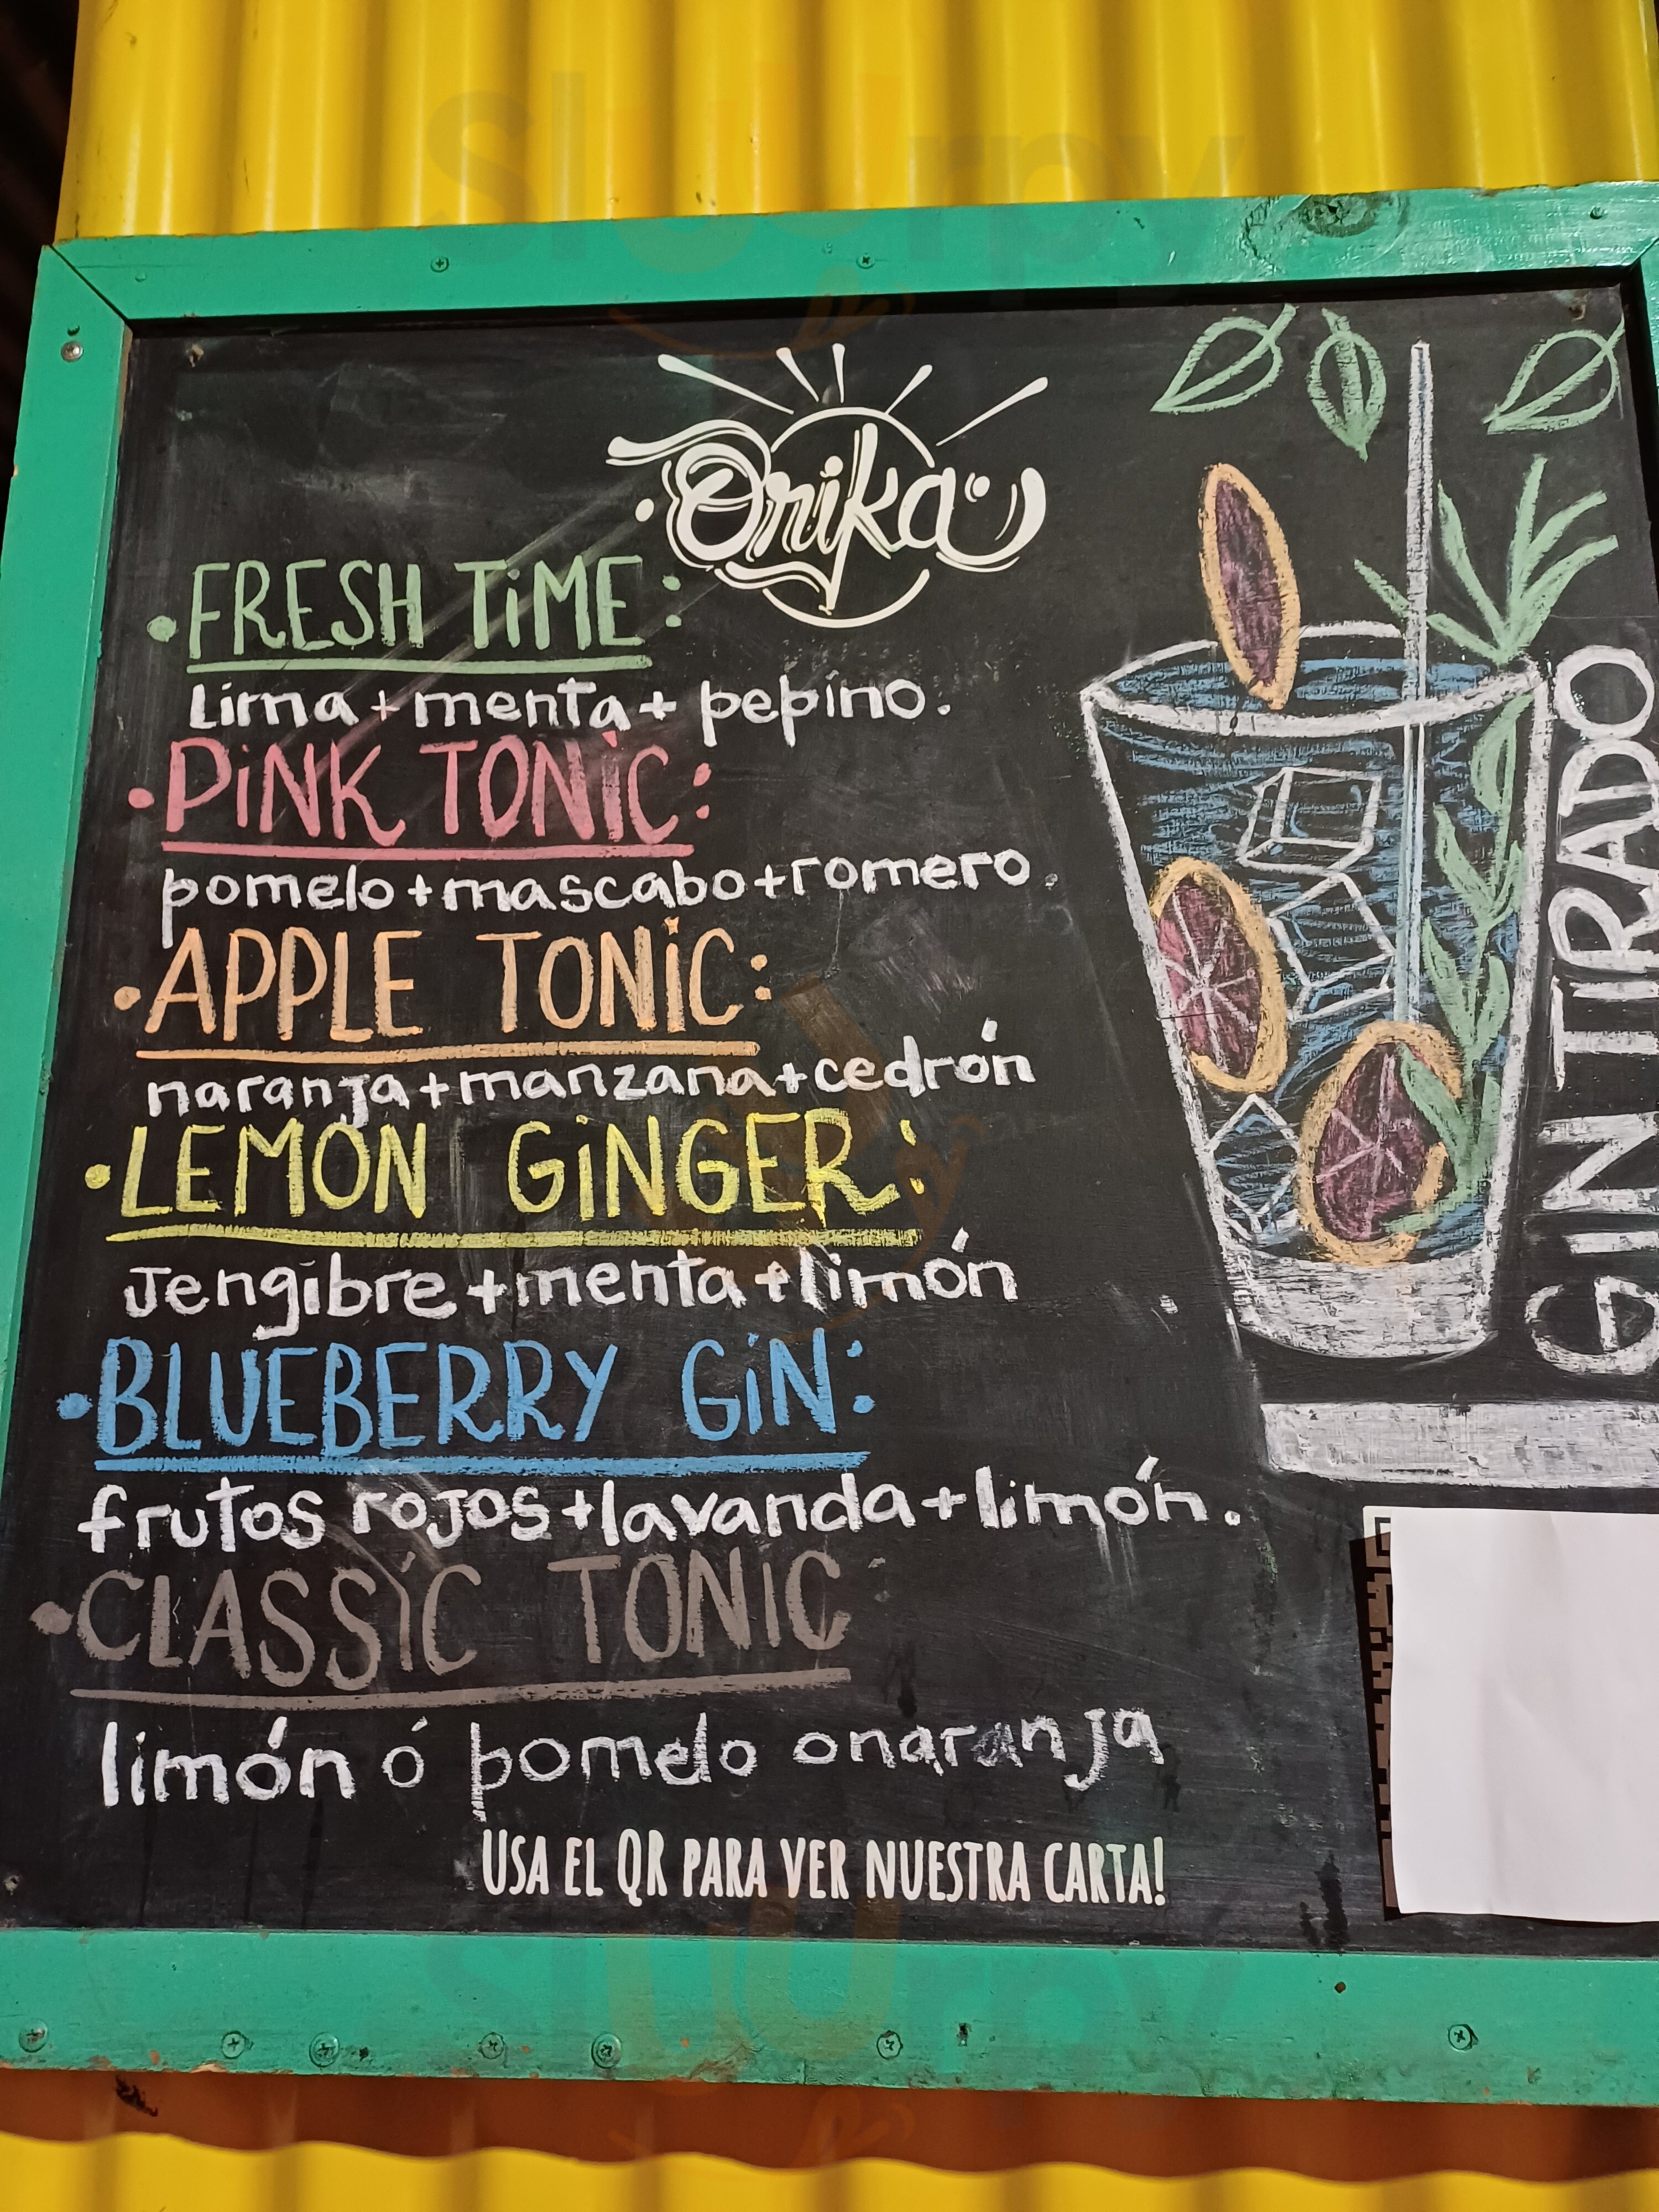 Orika
• FRESH TiME:
Lima + menta + pepino.
• PiNK TONiC:
pomelo + mascabo + romero.
• APPLE TONiC:
naranja + manzana + cedrón
• LEMON GiNGER:
Jengibre + menta + limón
• BLUEBERRY GiN:
frutos rojos + lavanda + limón.
• CLASSiC TONiC
limón ó pomelo o naranja
USA EL QR PARA VER NUESTRA CARTA!
GIN TIRADO
Sluurpy
Sluurpy